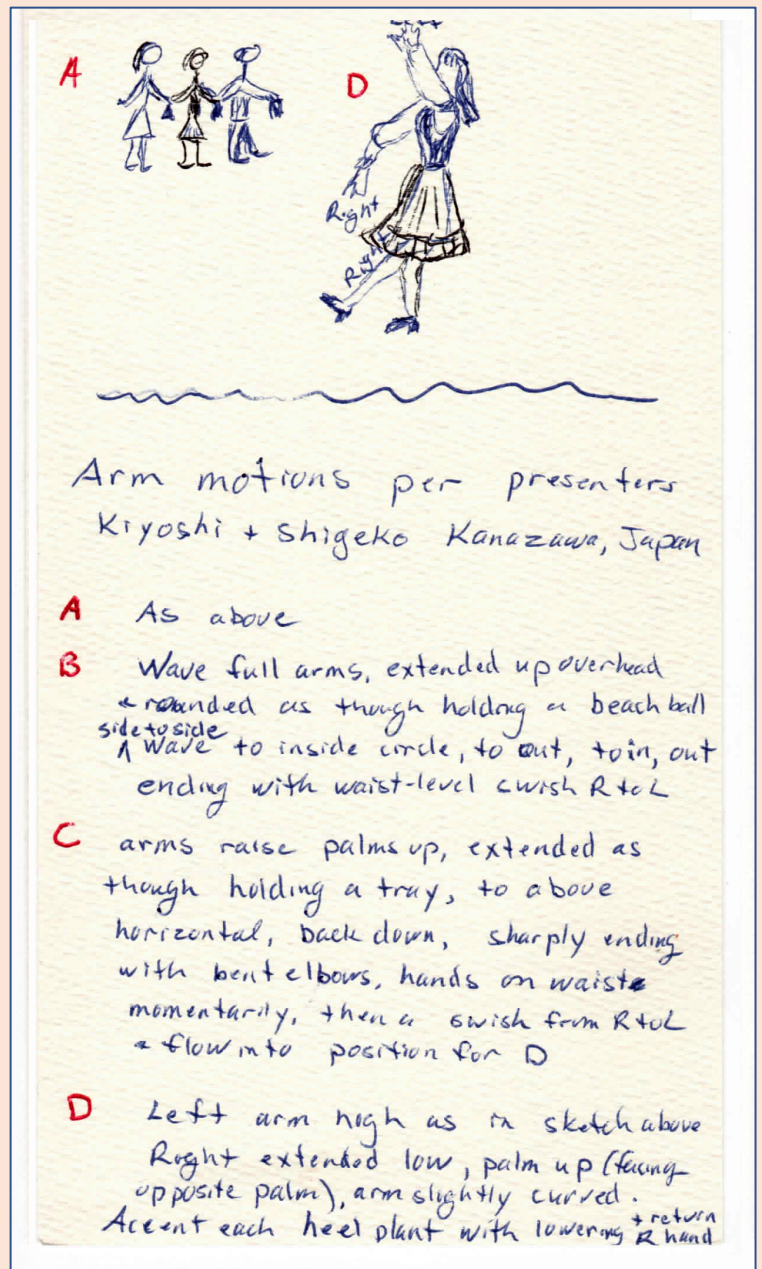 A
D
Right
Right
Arm motions per presenters
Kiyoshi + Shigeko Kanazawa, Japan
A As above
B Wave full arms, extended up overhead
+ rounded as though holding a beach ball
side to side
^ Wave to inside circle, to out, to in, out
ending with waist-level swish R to L
C arms raise palms up, extended as
though holding a tray, to above
horizontal, back down, sharply ending
with bent elbows, hands on waist
momentarily, then a swish from R to L
+ flow into position for D
D Left arm high as in sketch above
Right extended low, palm up (facing
opposite palm), arm slightly curved.
Accent each heel plant with lowering + return
R hand